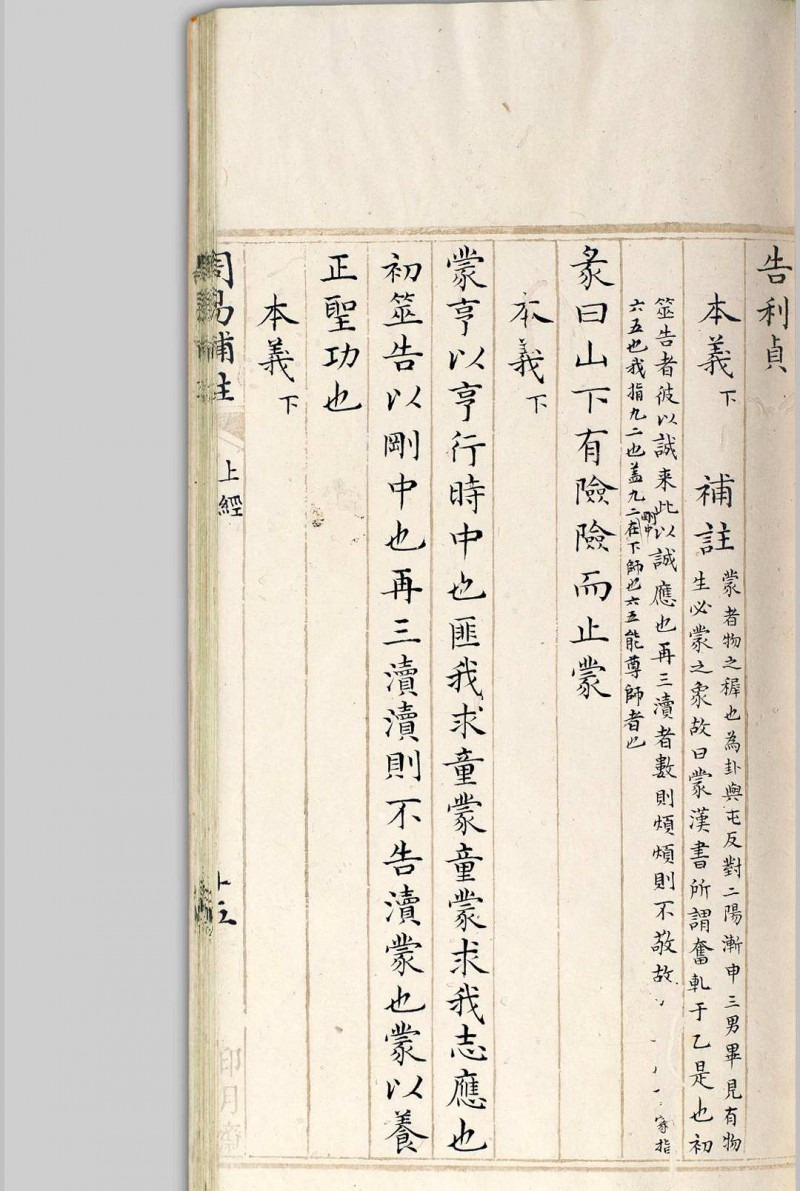 告利貞
本義下 補註
蒙者物之穉也為卦與屯反對二陽漸申三男畢見有物
生必蒙之象故曰蒙漢書所謂奮軋于乙是也初
筮告者彼以誠来此以誠應也再三瀆者數則煩煩則不敬故
家指
六五也我指九二也盖九二剛中在下師也六五能尊師者也
彖曰山下有險險而止蒙
本義下
蒙亨以亨行時中也匪我求童蒙童蒙求我志應也
初筮告以剛中也再三瀆瀆則不告瀆蒙也蒙以養
正聖功也
本義下
周易補註 上經
印月齋